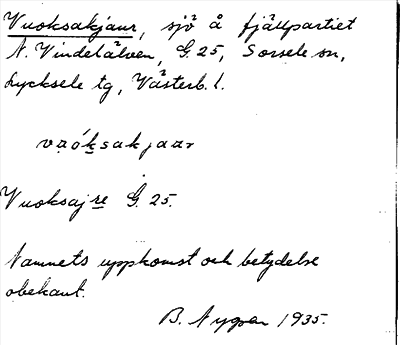 Vuoksakjaur, sjö å fjällpartiet
N. Vindelälven, G. 25, Sorsele sn,
Lycksele tg, Västerb. l.
vṷóksakjaur
Vuoksajre G. 25.
Namnets uppkomst och betydelse
obekant.
B. Nygren 1935.